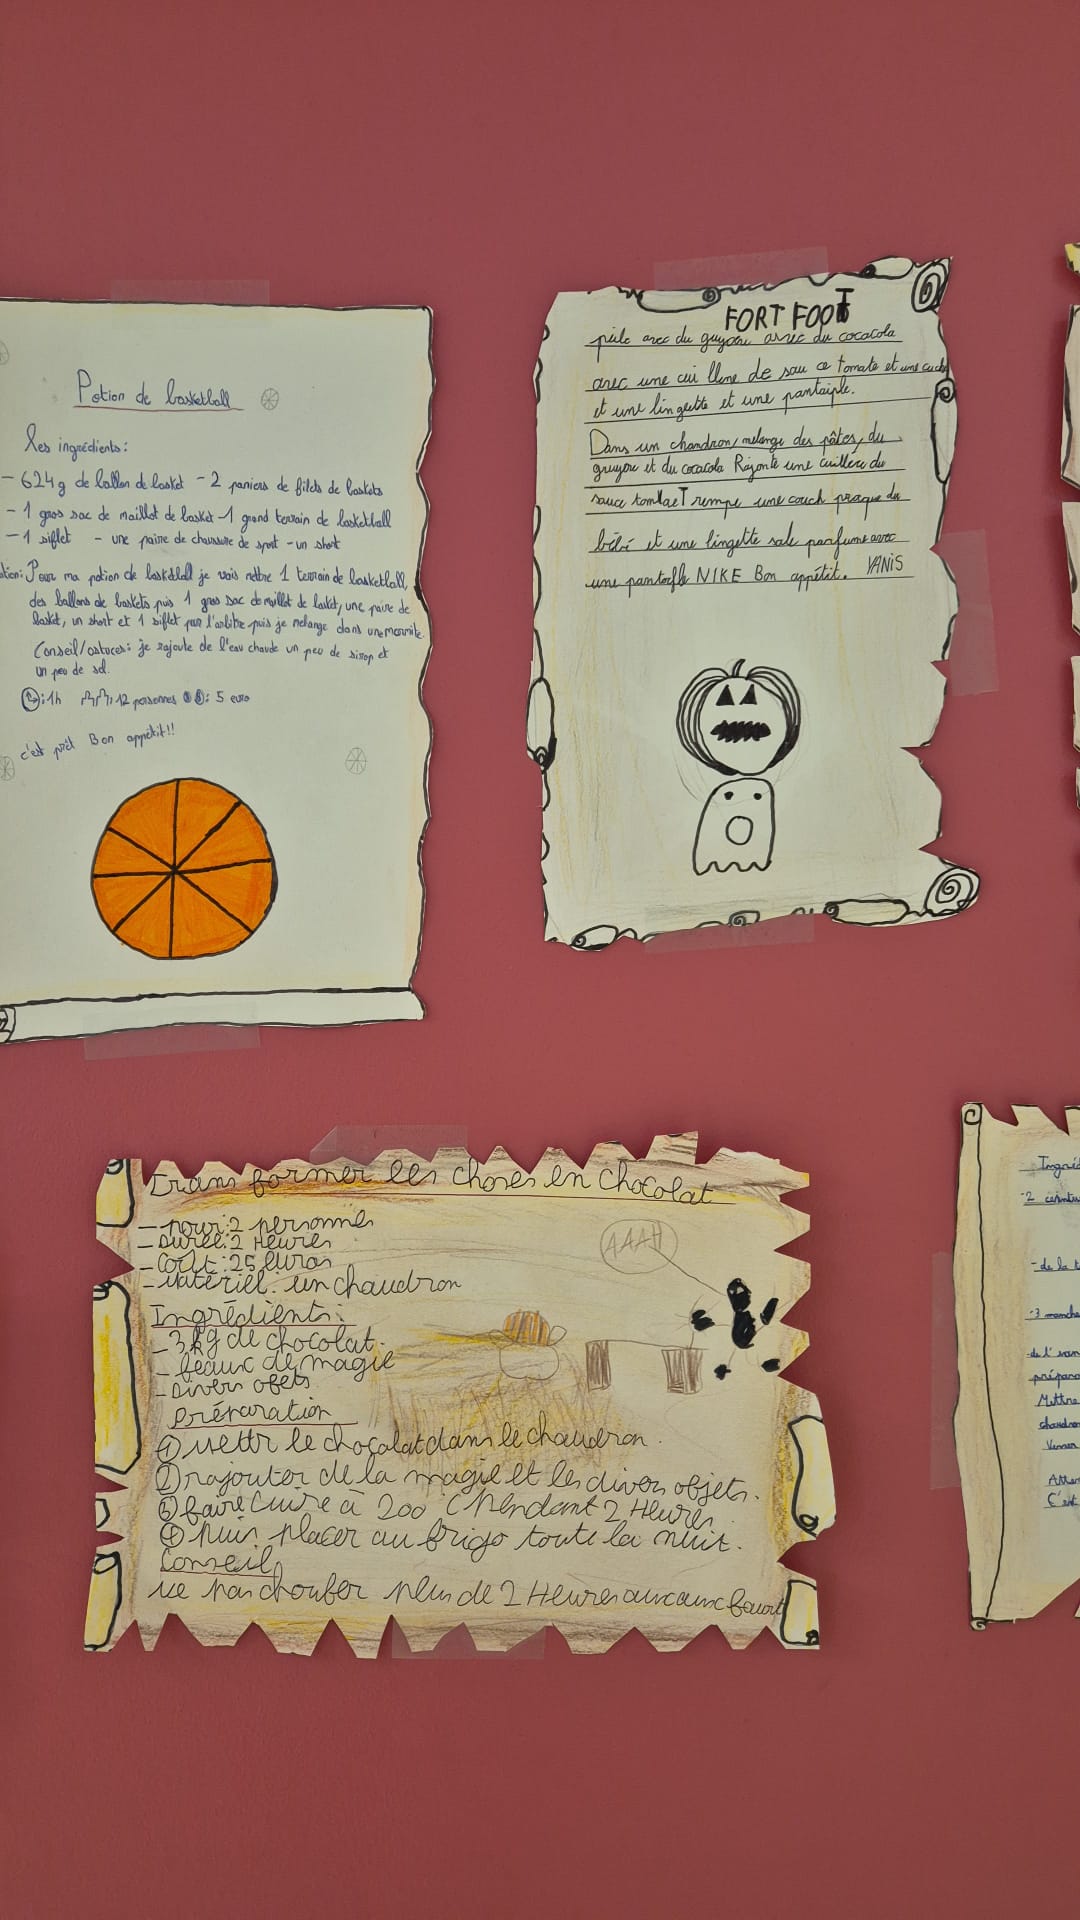 Potion de basketball
les ingrédients:
- 624g de ballon de basket - 2 paniers de filets de baskets
- 1 gros sac de maillot de basket - 1 grand terrain de basketball
- 1 siflet - une paire de chaussure de sport - un short
Pour ma potion de basketball je vais mettre 1 terrain de basketball,
des ballons de baskets puis 1 gros sac de maillot de basket, une paire de
basket, un short et 1 siflet pour l'arbitre puis je mélange dans une marmite.
Conseil/astuces: je rajoute de l'eau chaude un peu de sirop et
un peu de sel.
: 1h : 12 personnes : 5 euro
c'est prêt Bon appétit!!
FORT FOOT
avec du guyere avec du cocacola
avec une cui llere de sau ce tomate et une
et une lingette et une
Dans un chaudron, mélange des pâtes, du
gruyère et du cocacola Rajonte une cuillère de
sauce Trempe une couch du
bébé et une lingette sale parfume avec
une pantoufle NIKE Bon appétit. YANIS
Trans former les choses en chocolat
- pour: 2 personnes
- Durée: 2 Heures
- Coût: 25 euros
- Matériel: un chaudron
AAAH
Ingrédients:
- 3kg de chocolat.
- beaux de magie
- Divers objets
Préparation
① Mettr le chocolat dans le chaudron.
② rajouter de la magie et les divers objets.
③ faire cuire à 200 °C Pendant 2 Heures.
④ Puis placer au frigo toute la nuit.
Conseil
Ne pas choufer plus de 2 Heures
Ingréd
-2
- de la t
-3 manche
-de l'
prépara
Mettre
chaudron
Verser
C'est